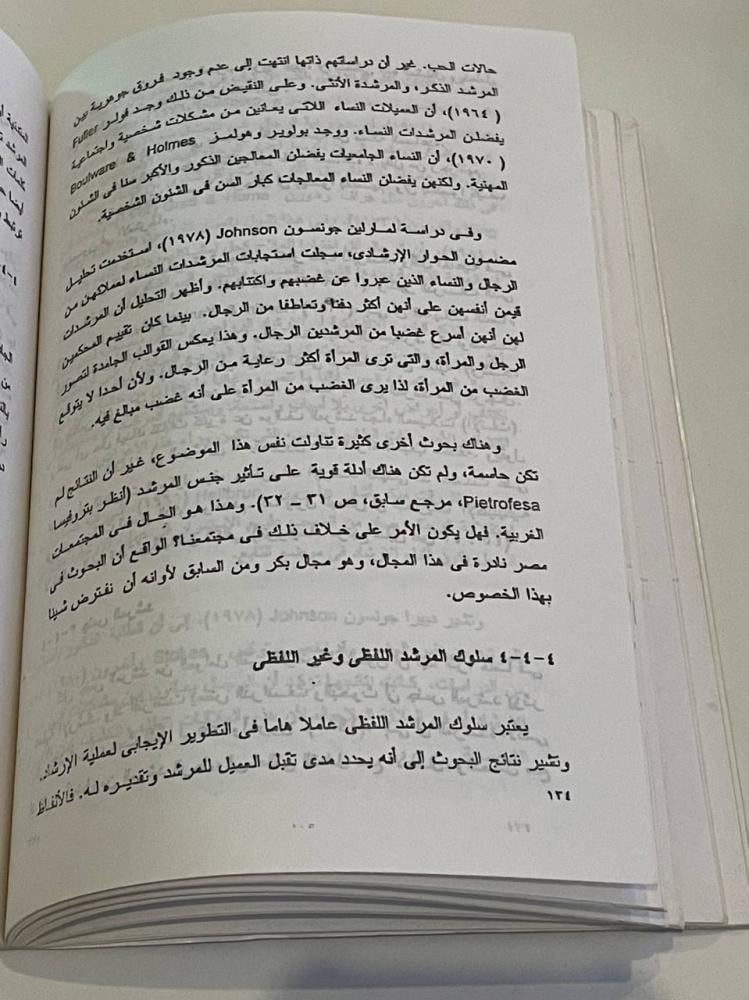 حالات الحب. غير أن دراساتهم ذاتها انتهت إلى عدم وجود فروق جوهرية بين
المرشد الذكر، والمرشدة الأنثى. وعلى النقيض من ذلك وجد فولر Fuller
(١٩٦٤)، أن العميلات النساء اللاتى يعانين من مشكلات شخصية واجتماعية
يفضلن المرشدات النساء. ووجد بولوير وهولمز Boulware & Holmes
(١٩٧٠)، أن النساء الجامعيات يفضلن المعالجين الذكور والأكبر سنا فى الشئون
المهنية. ولكنهن يفضلن النساء المعالجات كبار السن فى الشئون الشخصية.
وفى دراسة لمارلين جونسون Johnson (١٩٧٨)، استخدمت تحليل
مضمون الحوار الإرشادى، سجلت استجابات المرشدات النساء لعملائهن من
الرجال والنساء الذين عبروا عن غضبهم واكتئابهم. وأظهر التحليل أن المرشدات
قيمن أنفسهن على أنهن أكثر دفئا وتعاطفا من الرجال. بينما كان تقييم المحكمين
لهن أنهن أسرع غضبا من المرشدين الرجال. وهذا يعكس القوالب الجامدة لتصور
الرجل والمرأة، والتى ترى المرأة أكثر رعاية من الرجال. ولأن أحدا لا يتوقع
الغضب من المرأة، لذا يرى الغضب من المرأة على أنه غضب مبالغ فيه.
وهناك بحوث أخرى كثيرة تناولت نفس هذا الموضوع، غير أن النتائج لم
تكن حاسمة، ولم تكن هناك أدلة قوية على تأثير جنس المرشد (أنظر بتروفيسا
Pietrofesa، مرجع سابق، ص ٣١ – ٣٢). وهذا هو الحال فى المجتمعات
الغربية. فهل يكون الأمر على خلاف ذلك فى مجتمعنا؟ الواقع أن البحوث فى
مصر نادرة فى هذا المجال، وهو مجال بكر ومن السابق لأوانه أن نفترض شيئا
بهذا الخصوص.
٤-٤-٤ سلوك المرشد اللفظى وغير اللفظى
يعتبر سلوك المرشد اللفظى عاملا هاما فى التطوير الإيجابى لعملية الإرشاد.
وتشير نتائج البحوث إلى أنه يحدد مدى تقبل العميل للمرشد وتقديره له. فالألفاظ
١٣٤